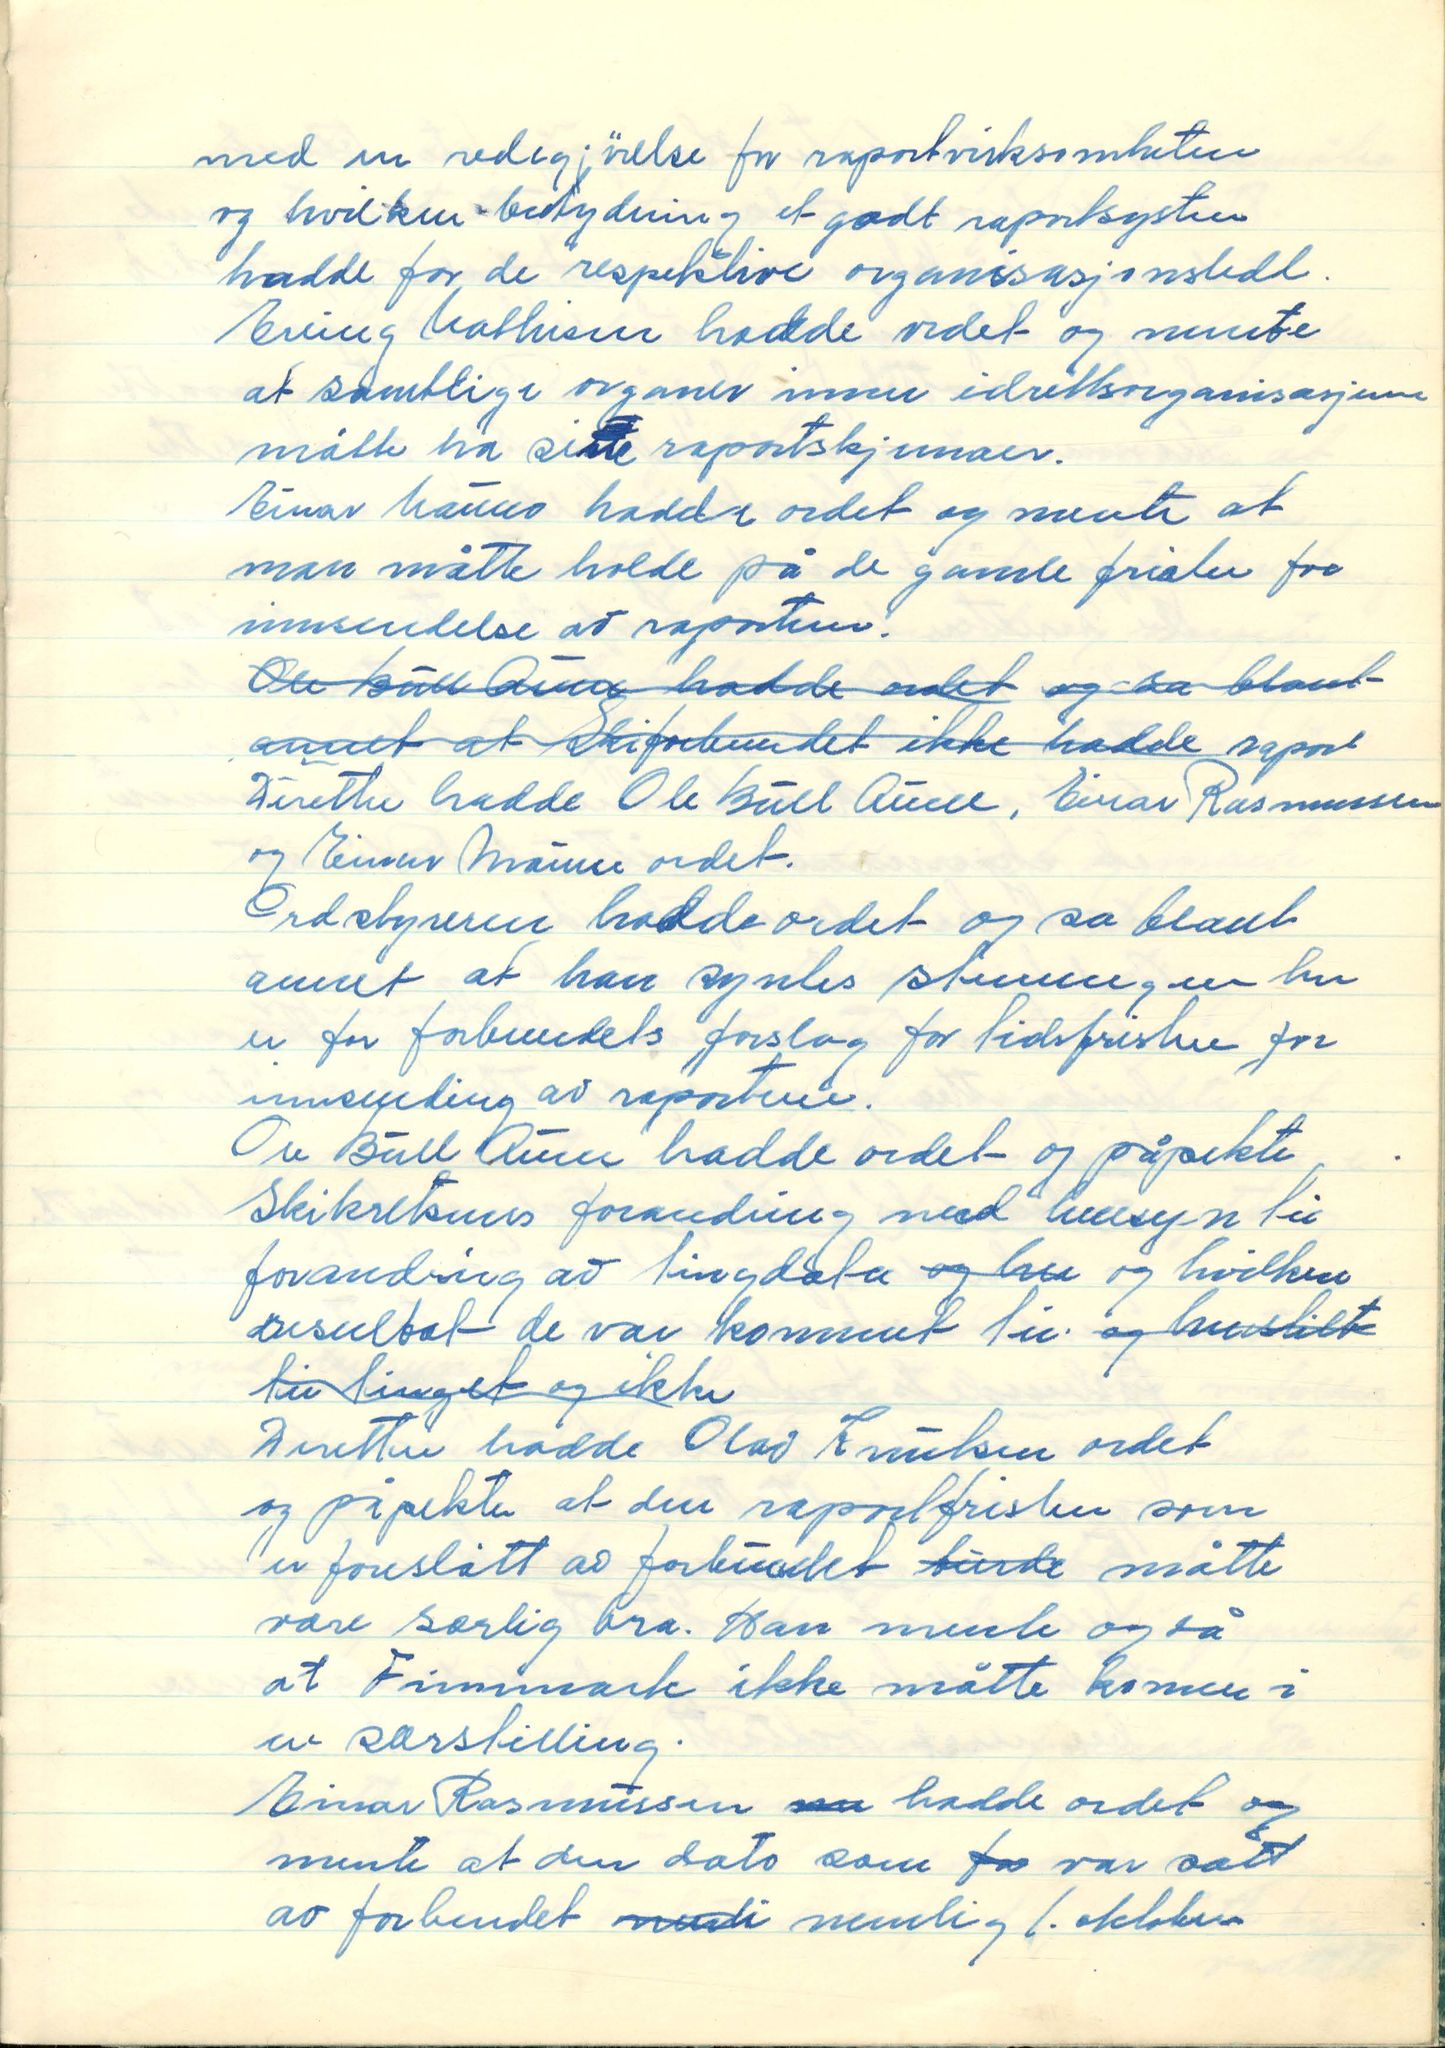 med en redegjörelse for raportvirksomheten
og hvilken betydning et godt raportsystem
hadde for de respektive organisasjonsledd.
Erling Mathisen hadde ordet og mente
at samtlige organer innen idrettsorganisasjonene
måtte ha siste raportskjemaer.
Einar Mauno hadde ordet og mente at
man måtte holde på de gamle frister for
innsendelse av raporten.
Ole Bull Aune hadde ordet og sa blant
annet at Skiforbundet ikke hadde raport
Deretter hadde Ole Bull Aune, Einar Rasmussen
og Einar Mauno ordet.
Ordstyreren hadde ordet og sa blant
annet at han syntes stemningen her
er for forbundets forslag for tidsfristen for
innsending av raportene.
Ole Bull Aune hadde ordet og påpekte
Skikretsens forandring med hensyn til
forandring av tingdato og hvilken
resultat de var kommet til. og
til tinget og ikke
Deretter hadde Olav Knutsen ordet
og påpekte at den raportfristen som
er foreslått av forbundet burde måtte
være særlig bra. Han mente også
at Finnmark ikke måtte komme i
en særstilling.
Einar Rasmussen hadde ordet og
mente at den dato som for var satt
av forbundet nemlig 1. oktober